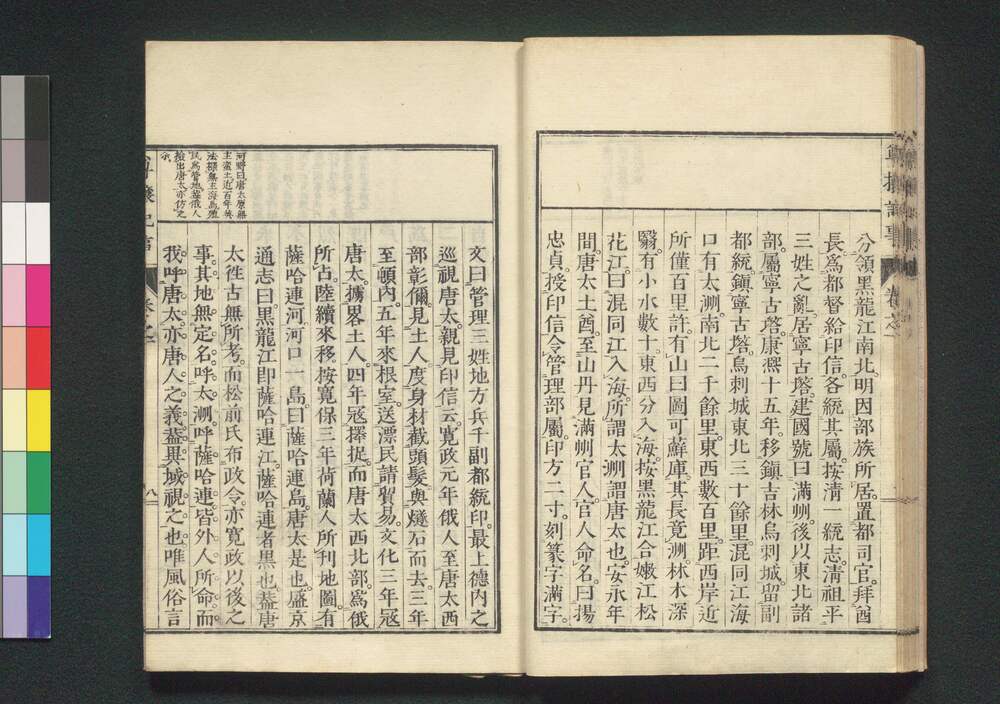 分領黑龍江南北。明因部族所居。置都司官。拜酋
長爲都督給印信。各統其屬。按淸一統志。淸祖平
三姓之亂。居寧古塔。建國號曰滿洲。後以東北諸
部。屬寧古塔。康熙十五年。移鎭吉林烏剌城。留副
都統。鎭寧古塔。烏剌城東北三十餘里。混同江海
口有太洲。南北二千餘里。東西數百里。距西岸近
所僅百里許。有山曰圖可蘇庫。其長竟洲。林木深
翳。有小水數十東西分入海。按黑龍江合嫩江松
花江。曰混同江入海。所謂太洲謂唐太也。安永年
間。唐太土酋。至山丹見滿州官人。官人命名。曰揚
忠貞。授印信令管理部屬。印方二寸。刻篆字滿字。
文曰管理三姓地方兵千副都統印。最上德內之
巡視唐太。親見印信云。寬政元年俄人至唐太西
部彰彌。見土人度身材截頭髮與燧石而去。三年
至頓內。五年來根室。送漂民請貿易。文化三年寇
唐太。擄畧土人。四年寇擇捉。而唐太西北部。爲俄
所占。陸續來移。按寬保三年荷蘭人所刊地圖有
薩哈連河河口一島。曰薩哈連島。唐太是也。盛京
通志曰。黑龍江卽薩哈連江。薩哈連者黑也。蓋唐
太徃古無所考。而松前氏布政令。亦寬政以後之
事。其地無定名。呼太洲。呼薩哈連。皆外人所命。而
我呼唐太。亦唐人之義。蓋異域視之也。唯風俗言
卷之
八